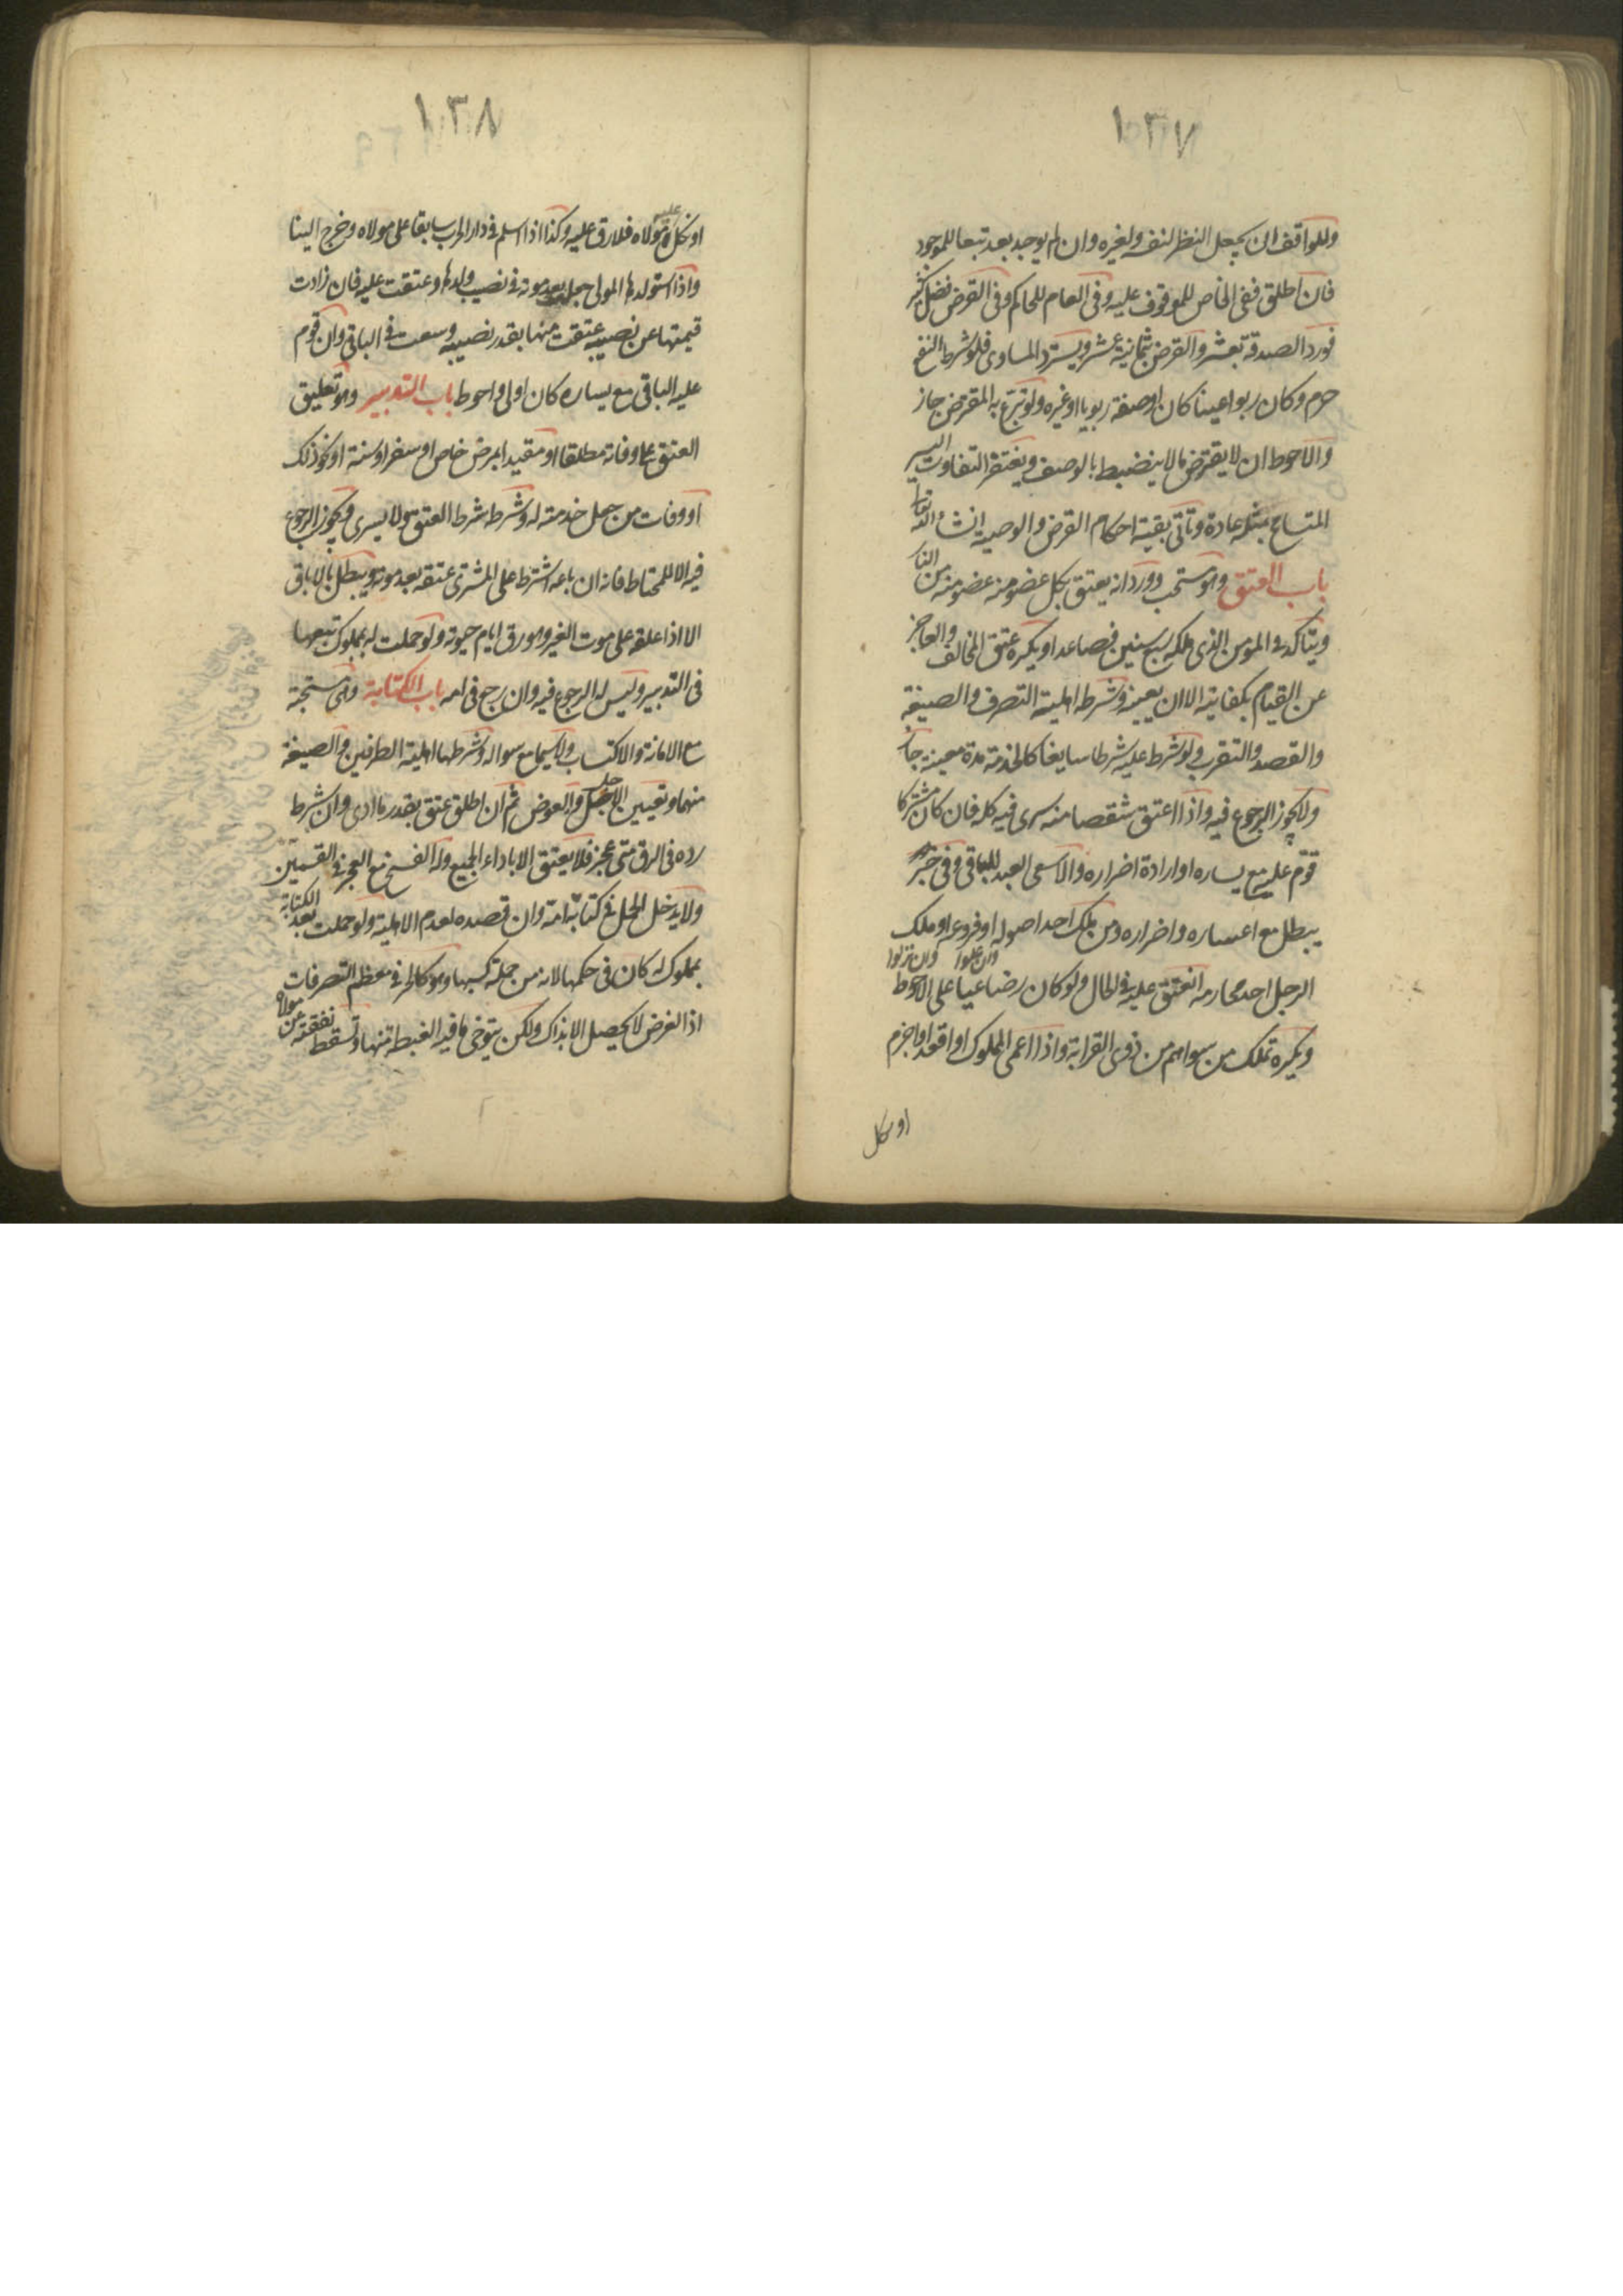 ١٣٧
وللواقف ان يجعل النظر لنفسه ولغيره وان لم يوجد بعد تبعا للموجود
فان اطلق ففى الخاص للموقوف عليه وفى العام للحاكم وفى القرض فضل كثير
فورد الصدقة بعشر والقرض بثمانية عشر ويسترد المساوى فلو شرط النفع
حرم وكان ربوا عينا كان او صفة ربويا او غيره ولو تبرع به المقترض جاز
والاحوط ان لا يقترض مالا ينضبط بالوصف ويغتفر التفاوت اليسير
المتسامح بمثله عادة وتأتى بقية احكام القرض والوصية انشاء الله تعالى
باب العتق وهو مستحب وورد انه يعتق بكل عضو منه عضو منه من النار
ويتأكد فى المؤمن الذى ملكه سبع سنين فصاعدا ويكره عتق المخالف والعاجز
عن القيام بكفايته الا ان يعينه وشرطه اهلية التصرف والصيغة
والقصد والتقرب ولو شرط عليه شرطا سايغا كالخدمة مدة معينة جاز
ولا يجوز الرجوع فيه واذا اعتق شقصا منه سرى فيه كله فان كان مشتركا
قوم عليه مع يساره او ارادة اضراره والا سعى العبد للباقى وفى خبر
يبطل مع اعساره واضراره ومن ملك احد اصوله او فروعه او ملك
وان علوا وان نزلوا
الرجل احد محارمه انعتق عليه فى الحال ولو كان رضاعيا على الاحوط
ويكره تملك من سواهم من ذوى القرابة واذا اعمى المملوك او اقعد او اجزم
او نكل
١٣٨
او نكل به مولاه فلا رق عليه وكذا اذا اسلم فى دار الحرب سابقا على مولاه وخرج الينا
واذا استولدها المولى جعلت بعد موته فى نصيب ولدها وعتقت عليه فان زادت
قيمتها عن نصيبه عتقت منها بقدر نصيبه وسعت فى الباقى وان قوم
عليه الباقى مع يساره كان اولى واحوط باب التدبير وهو تعليق
العتق بما وفاته مطلقا او مقيدا بمرض خاص او سفر او سنة او نحو ذلك
او وفات من جعل خدمته له وشرطه شرط العتق ولا يسرى ويجوز الرجوع
فيه الا للمحتاط فانه ان باعه اشترط على المشترى عتقه بعد موته ويبطل بالاباق
الا اذا علقه على موت الغير وهو رق ايام حيوته ولو حملت له بمملوك تبعها
فى التدبير وليس له الرجوع فيه وان رجع فى امه باب الكتابة وهى مستحبة
مع الامانة والاكتساب ولا سيما مع سواله وشرطها اهلية الطرفين والصيغة
منهما وتعيين الاجل والعوض ثم ان اطلق عتق بقدر ما ادى وان شرط
رده فى الرق متى عجز فلا يعتق الا باداء الجميع وله الفسخ مع العجز فى القسمين
ولا يدخل الحمل فى كتابة امه وان قصده لعدم الاهلية ولو حملت بعد الكتابة
بمملوك له كان فى حكمها لانه من جملة كسبها وهو كالحر فى معظم التصرفات
اذا الغرض لا يحصل الا بذاك ولكن يتوخى ما فيه الغبطة منها وتسقط نفقته عن مولاه